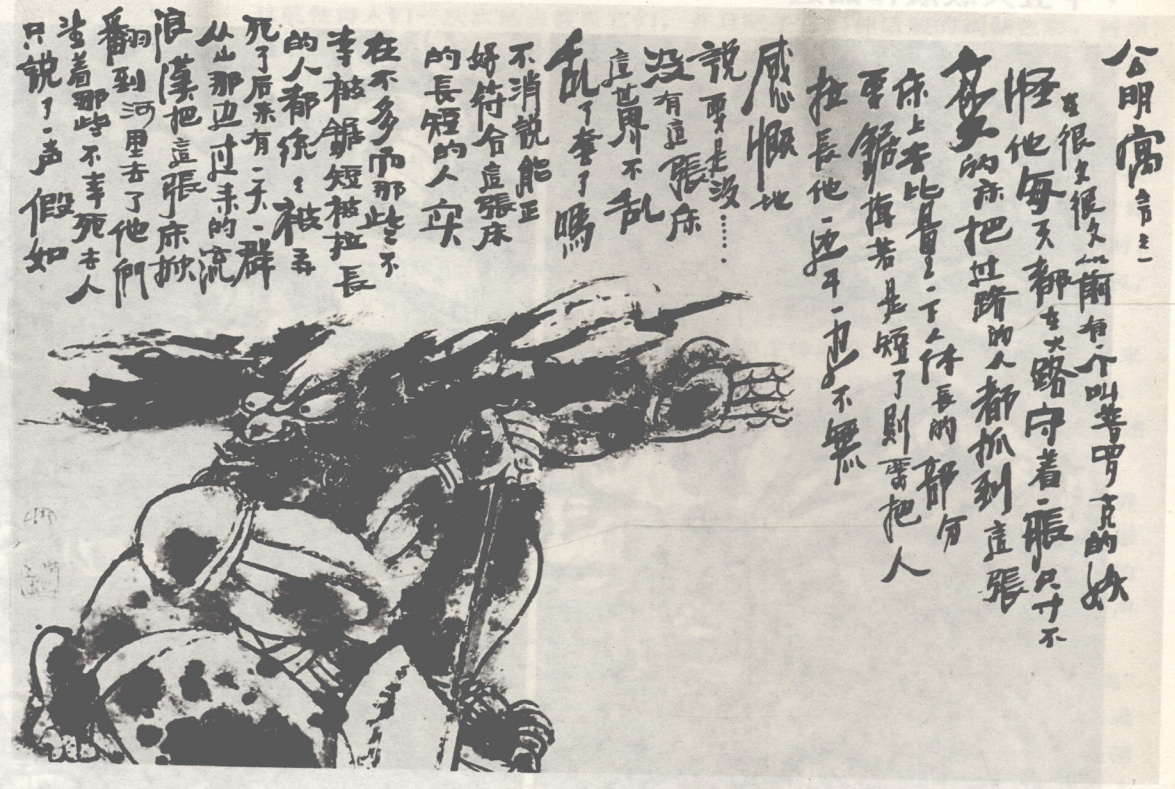 公明寓言之一
在很久很久以前有一个叫普啰克的妖
怪他每天都在大路守着一張尺寸不
变的床把过路的人都抓到這張
床上去比量々一下人体長的部分
要鋸掉若是短了則要把人
拉長他一边干一边不無
感慨地
説要是没……
没有這張床
這世界不乱
乱了套了嗎
不消説能正
好符合這張床
的長短的人实
在不多而那些不
幸被鋸短被拉長
的人都统々被弄
死了后来有一天一群
从山那边过来的流
浪漢把這張床掀
翻到河里去了他們
望着那些不幸死去人
只說了一声假如